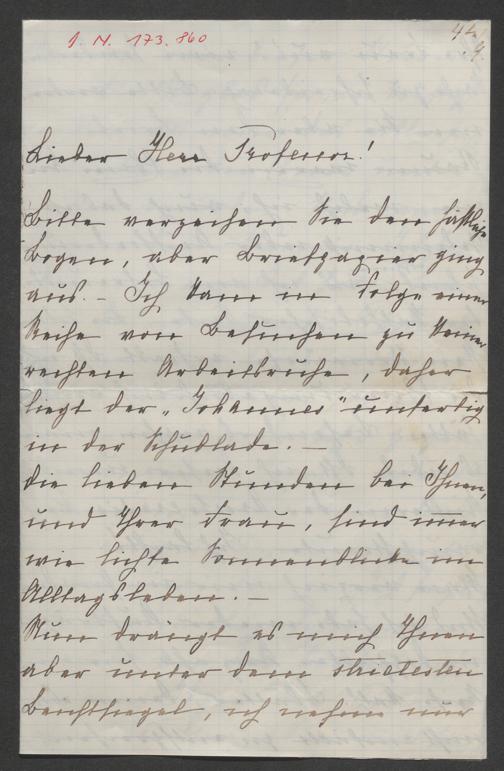 I. N. 173.860
44.
9.
Lieber Herr Professor!
Bitte verzeihen Sie den häßlichen
Bogen, aber Briefpapier ging
aus. – Ich kam in Folge einer
Reihe von Besuchen zu keiner
rechten Arbeitsruhe, daher
liegt der „Johannes" unfertig
in der Schublade. –
Die lieben Stunden bei Ihnen,
und Ihrer Frau, sind immer
wie lichte Sonnenblicke im
Alltagsleben. –
Nun drängt es mich Ihnen
aber unter dem strictesten
Beichtsiegel, ich nehme nur